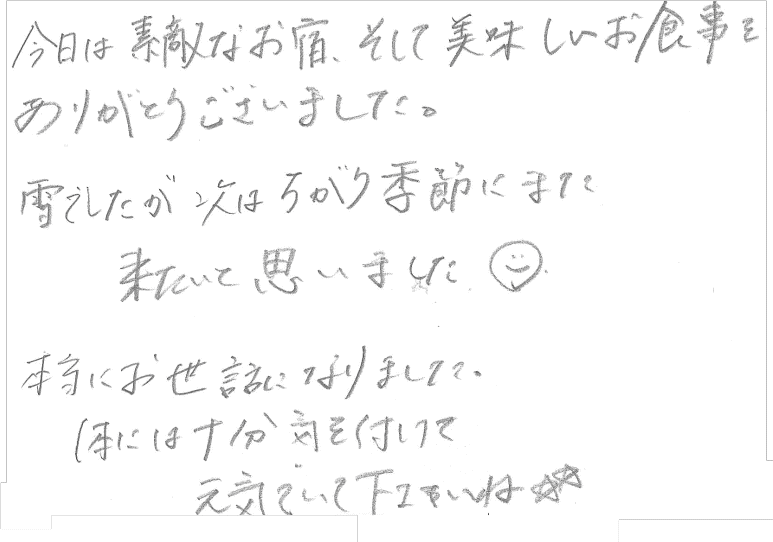 今日は素敵なお宿、そして美味しいお食事を
ありがとうございました。
雪でしたが次はちがう季節にまた
来たいと思いました
本当にお世話になりました。
体には十分気を付けて
元気でいて下さいね☆☆